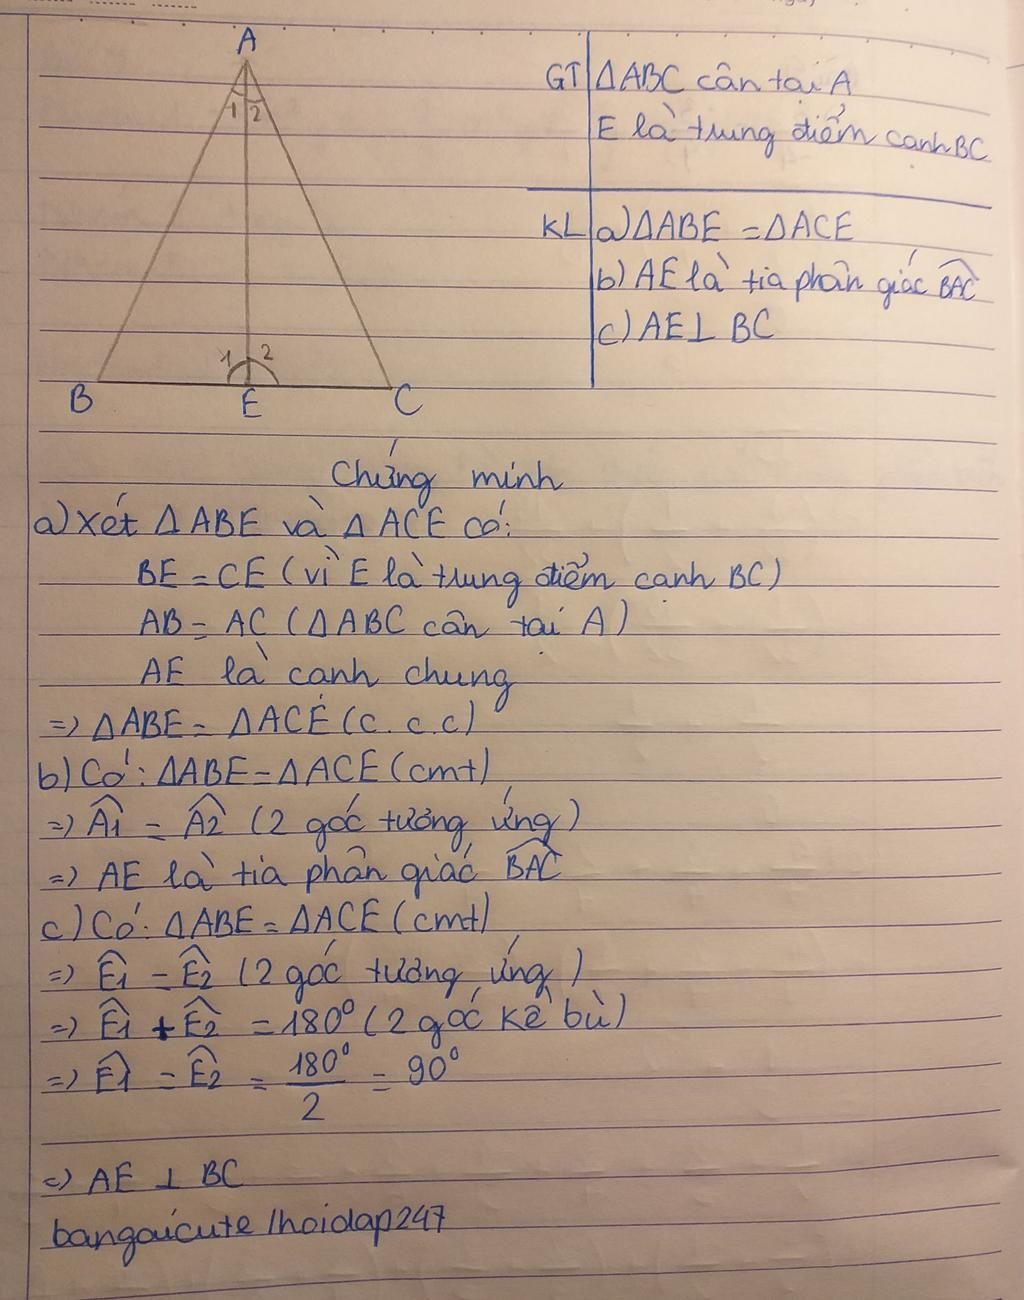 A
1 2
1 2
B E C
GT ΔABC cân tại A
E là trung điểm cạnh BC
KL a) ΔABE = ΔACE
b) AE là tia phân giác B̂AC
c) AE ⊥ BC
Chứng minh
a) Xét ΔABE và ΔACE có:
BE = CE (vì E là trung điểm cạnh BC)
AB = AC (ΔABC cân tại A)
AE là cạnh chung
=> ΔABE = ΔACE (c.c.c)
b) Có: ΔABE = ΔACE (cmt)
=> Â1 = Â2 (2 góc tương ứng)
=> AE là tia phân giác B̂AC
c) Có: ΔABE = ΔACE (cmt)
=> Ê1 = Ê2 (2 góc tương ứng)
=> Ê1 + Ê2 = 180° (2 góc kề bù)
=> Ê1 = Ê2 = 180°/2 = 90°
=> AE ⊥ BC
bangaicute / hoidap247